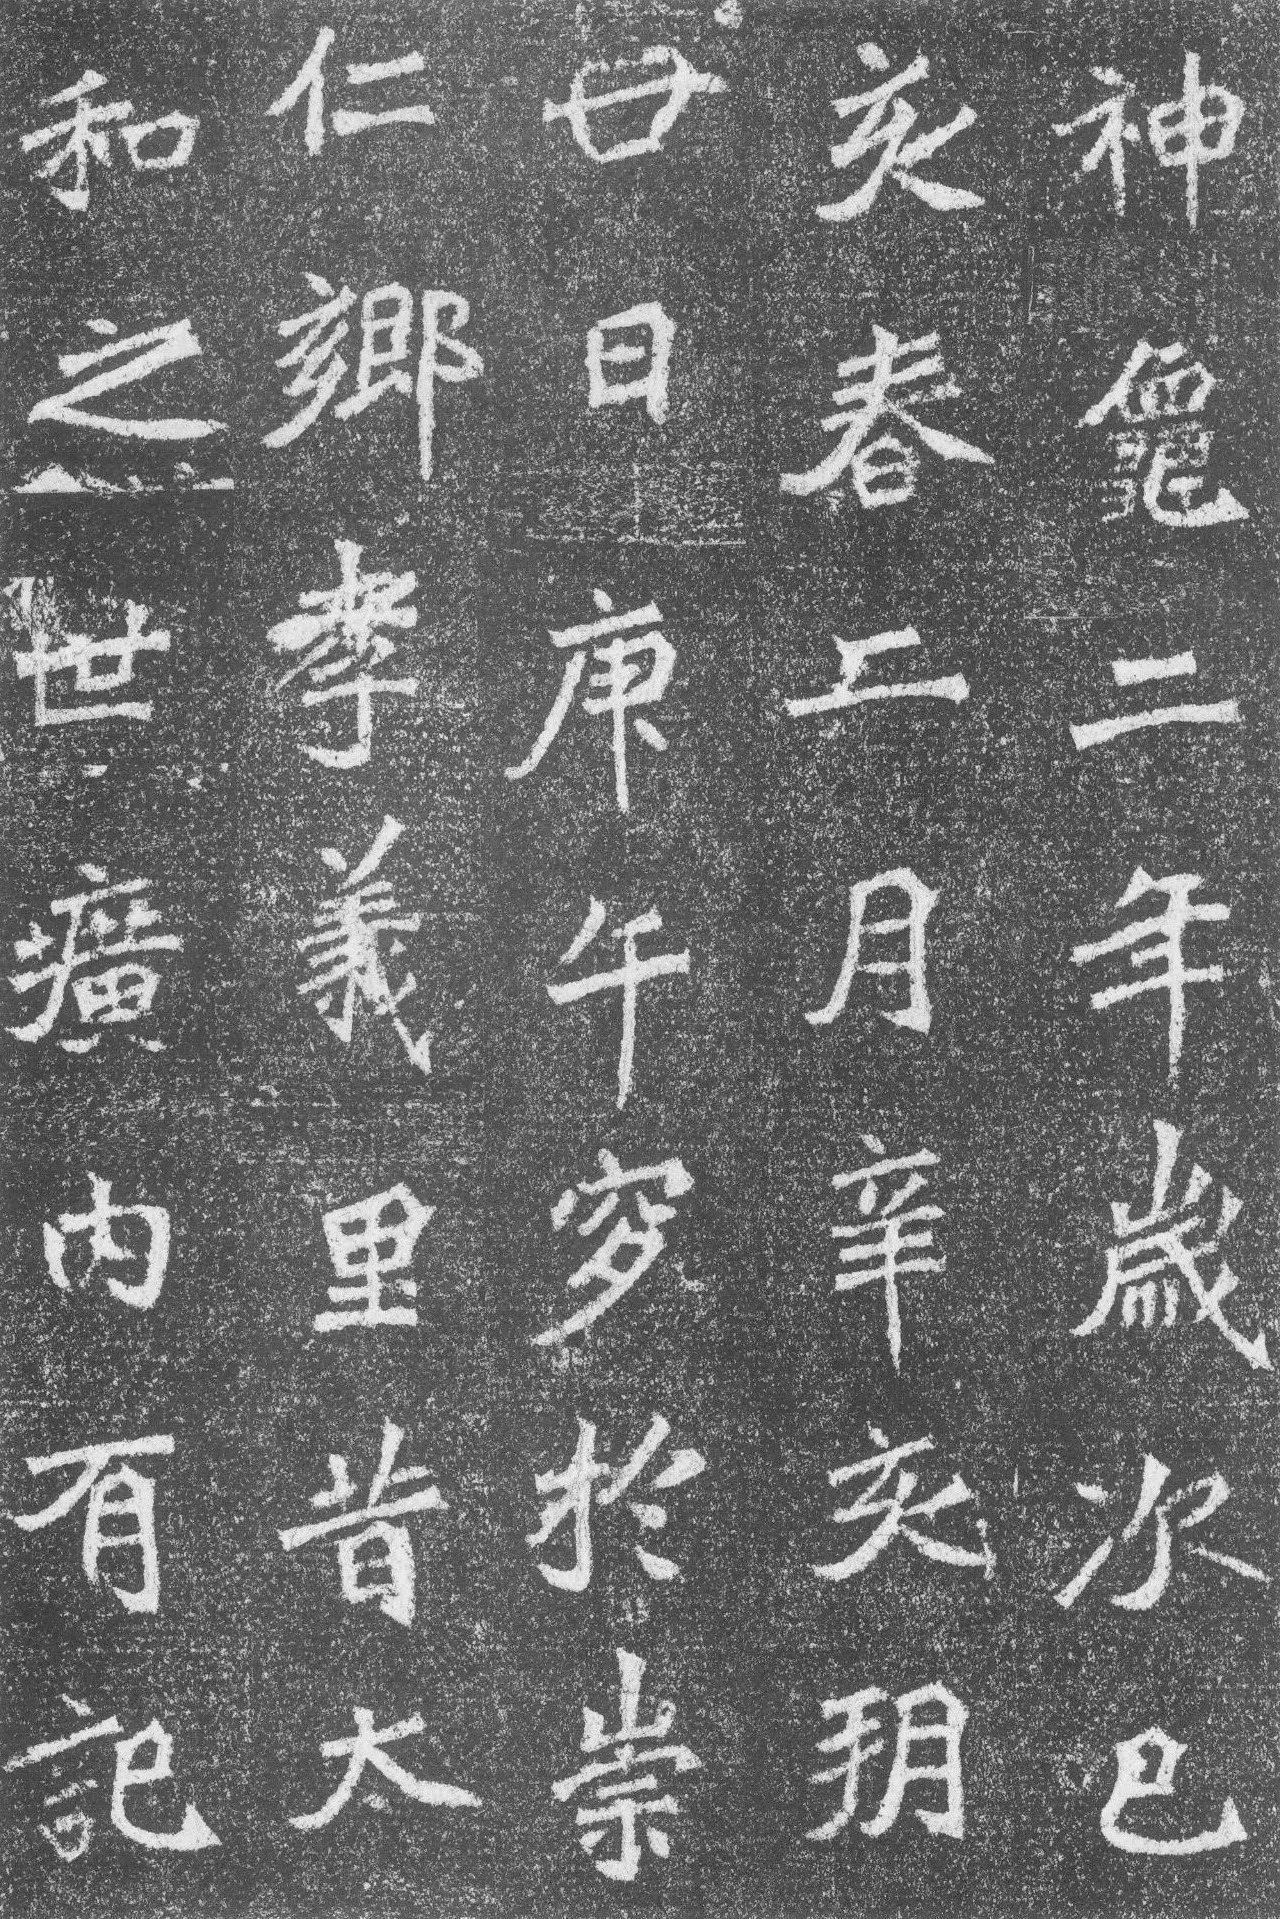 神龜二年歲次己
亥春二月辛亥朔
廿日庚午窆於崇
仁鄉孝義里昔太
和之世壙內有記